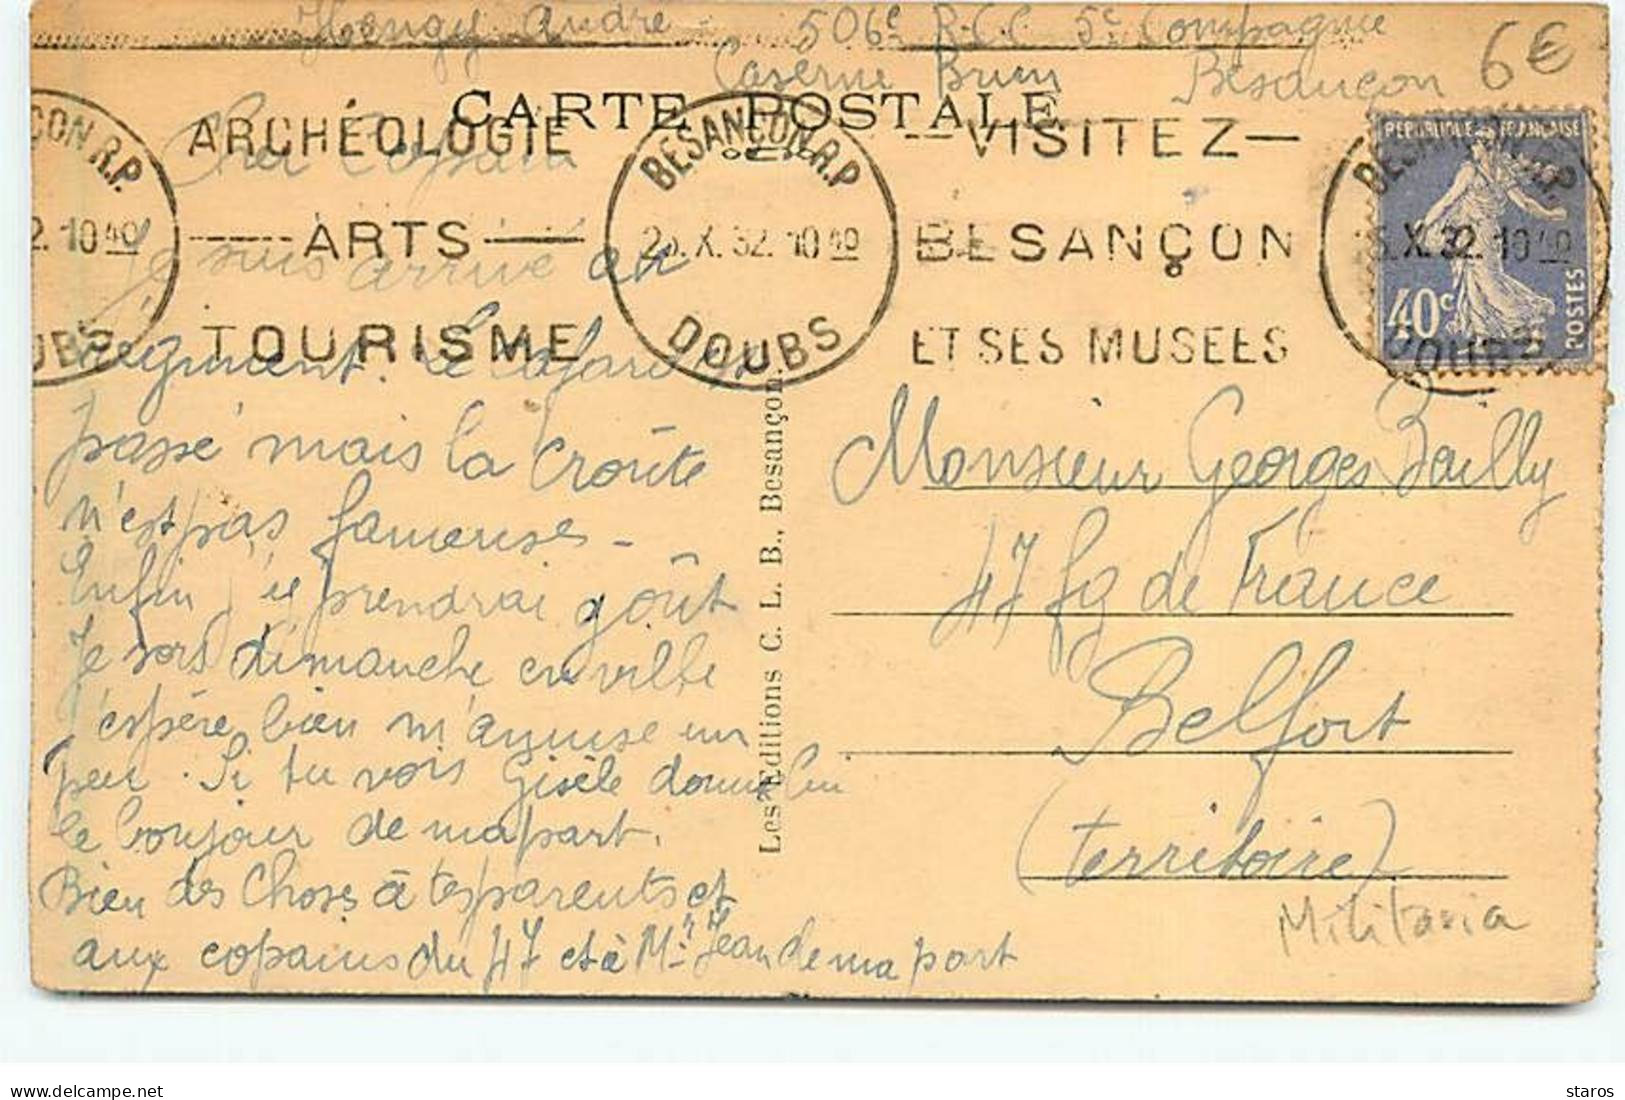 Hengy André 506e R.C.C 5e Compagnie
Caserne Brun Besançon
6€
CARTE POSTALE
ÇON R.P.
2. 10 40
UBS
ARCHÉOLOGIE
ARTS
TOURISME
BESANÇON R.P
25.X.32. 10 40
DOUBS
VISITEZ
BESANÇON
ET SES MUSEES
BESANÇON R.P.
5.X.32. 10 40
DOUBS
REPUBLIQUE FRANÇAISE
40c
POSTES
Cher Copain
Je suis arrivé au
Regiment. Le Cafard est
passé mais la croûte
n'est pas fameuse -
Enfin j'ie prendrai goût
Je sors dimanche en ville
j'espère bien m'amuse un
peu. Si tu vois Gisèle donne lui
le bonjour de ma part.
Bien des Choses à tes parents et
aux copains du 47 et à Mr Jean de ma part
Les Editions C. L. B., Besançon.
Monsieur Georges Bailly
47 fg de France
Belfort
(territoire)
Militaria
staros